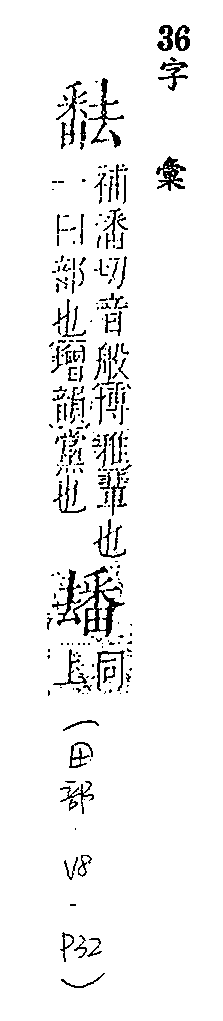 36
字彙
補潘切音般博雅輩也
一曰部也增韻黨也
同
上
(田部.V8-P32)